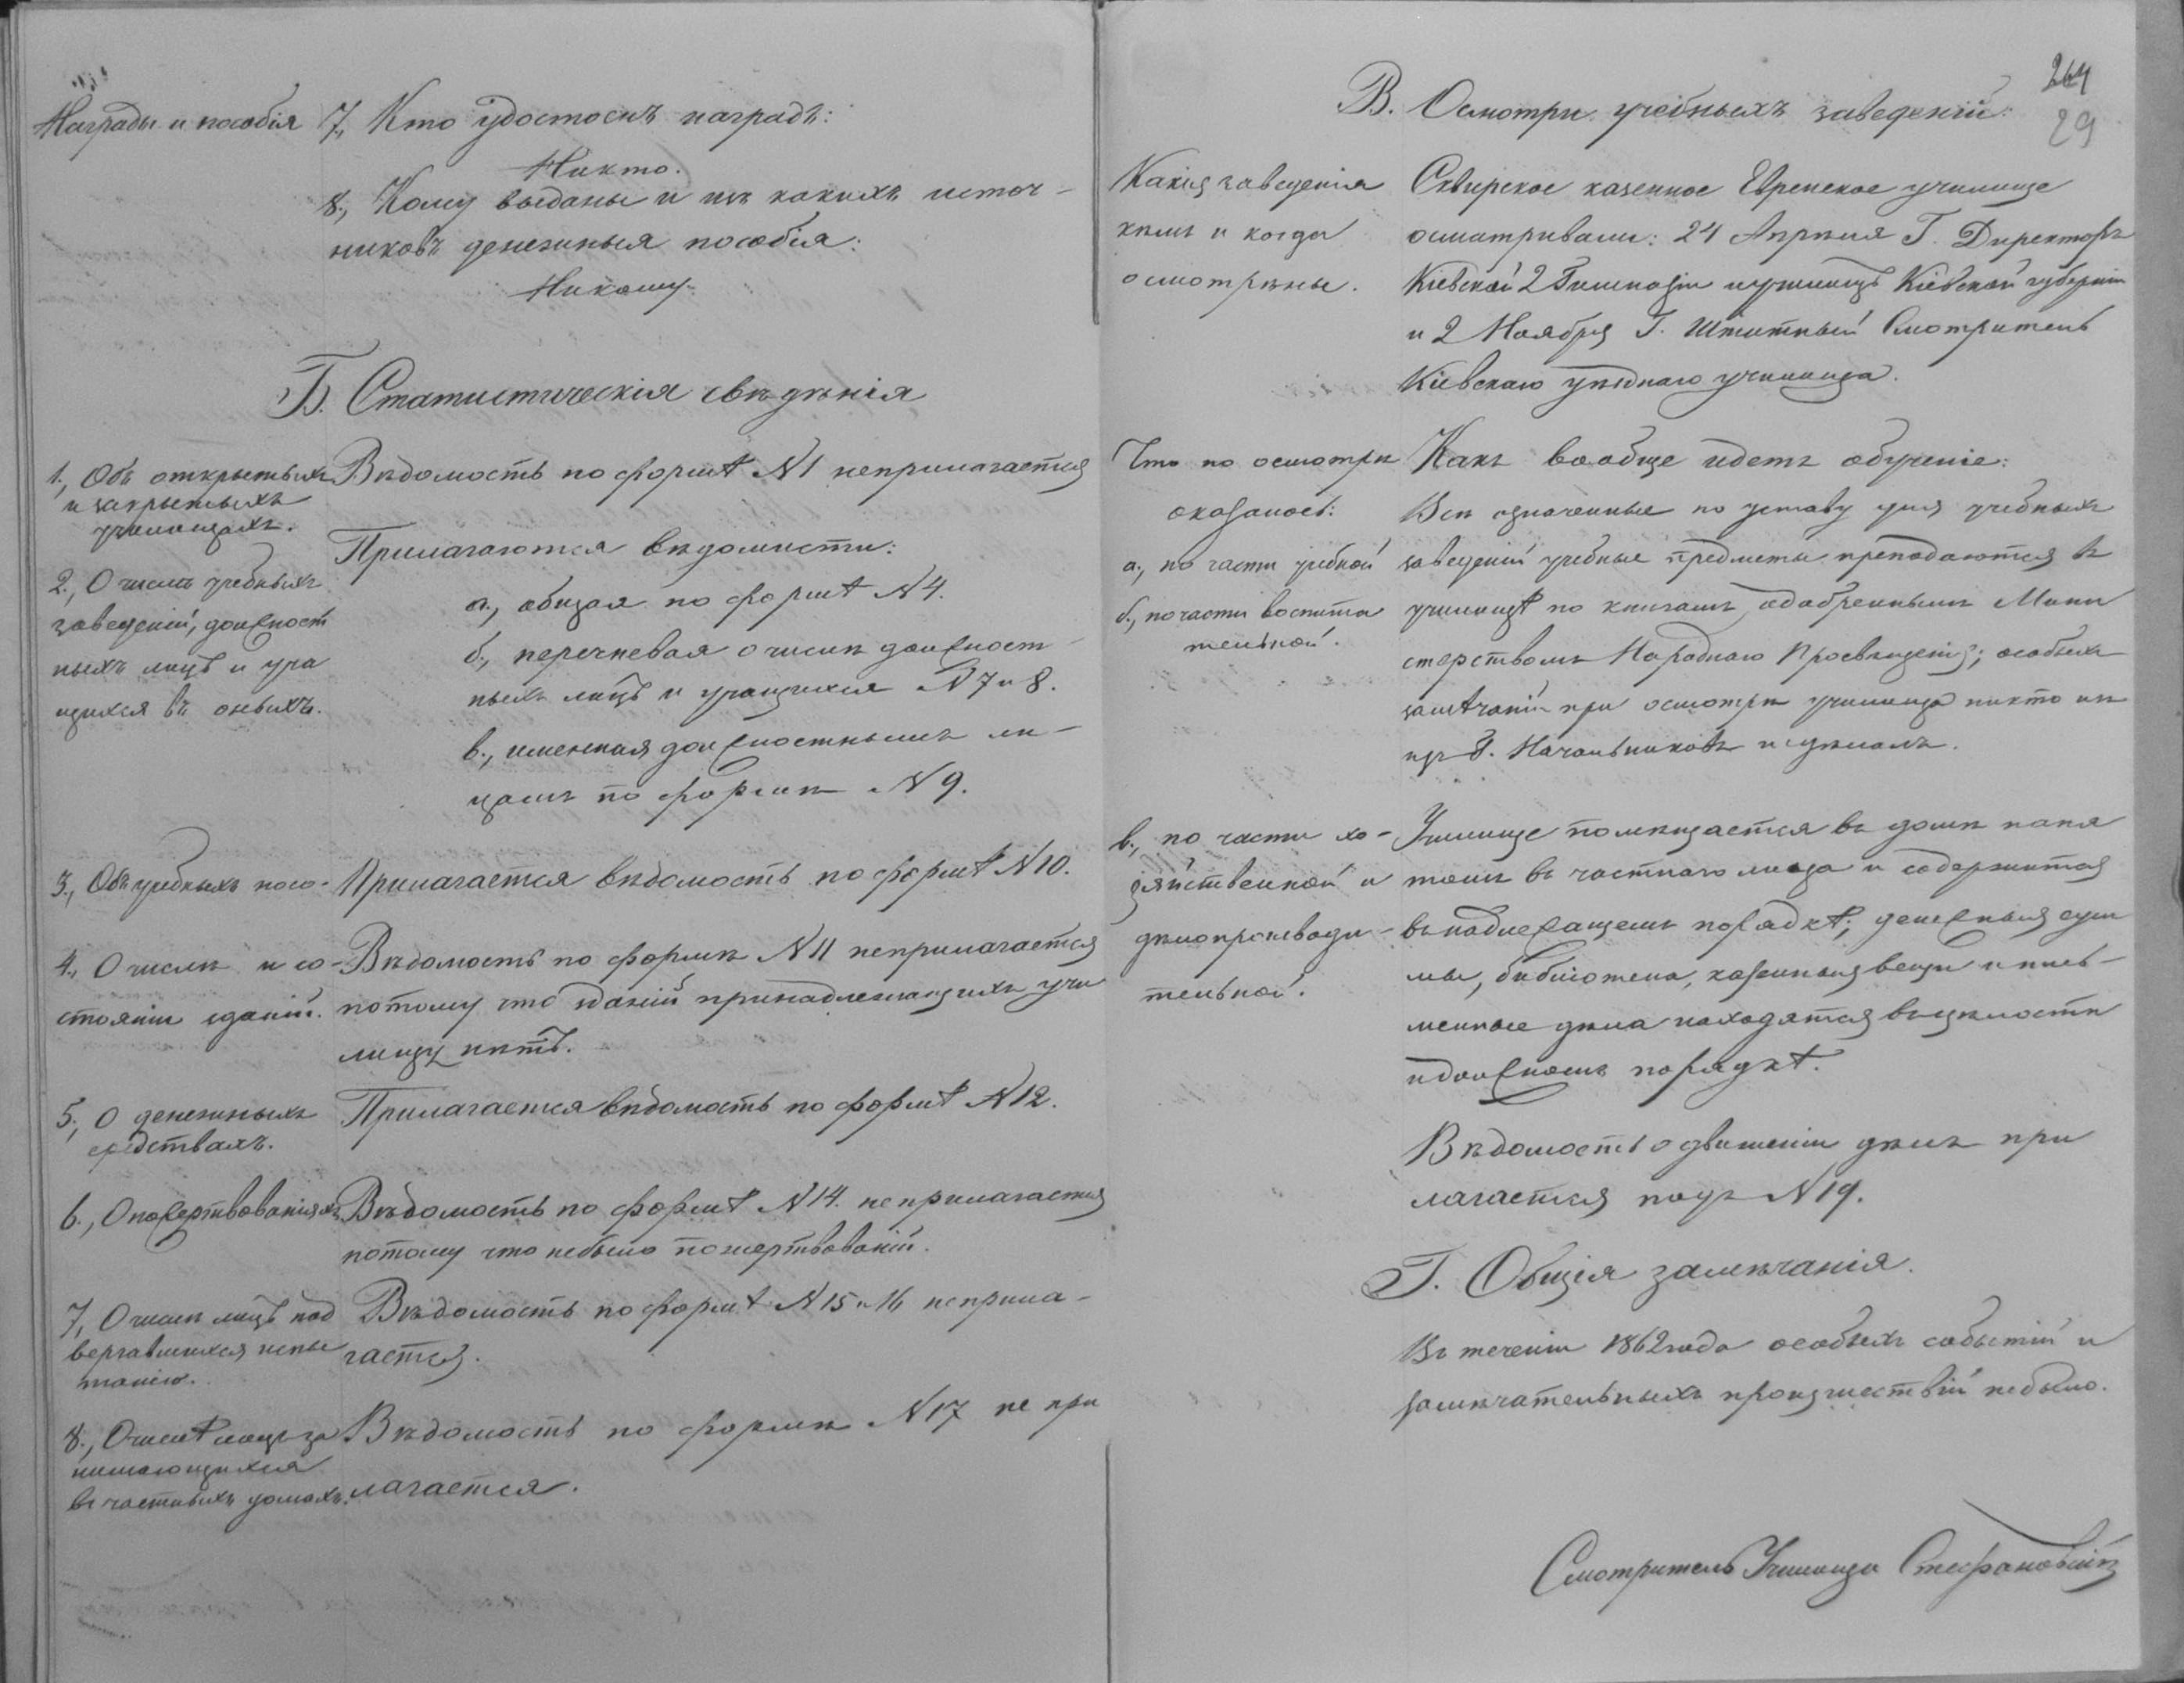 Награды и пособія
7., Кто удостоенъ наградъ:
Никто.
8., Кому выданы и изъ какихъ источ-
никовъ денежныя пособія:
Никому.
Б. Статистическія свѣдѣнія
1., Объ открытыхъ
и закрытыхъ
училищахъ.
Вѣдомость по формѣ N 1 неприлагается
2., О числѣ учебныхъ
заведеній, должност
ныхъ лицъ и уча
щихся въ оныхъ.
Прилагаются вѣдомисти:
а., общая по формѣ N 4.
б., перечневая о числѣ должност-
ныхъ лицъ и учащихся N 7 и 8.
в., именная должностнымъ ли-
цамъ по формѣ N 9.
3., Объ учебныхъ посо-
Прилагается вѣдомость по формѣ N 10.
4., О числѣ и со-
стояніи зданій.
Вѣдомость по формѣ N 11 неприлагается
потому что зданій принадлежащихъ учи
лищу нѣтъ.
5., О денежныхъ
средствахъ.
Прилагается вѣдомость по формѣ N 12.
6., О пожертвованіяхъ
Вѣдомость по формѣ N 14. не прилагается
потому что небыло пожертвованій.
7., О числѣ лицъ под
вергавшихся испы
танію.
Вѣдомость по формѣ N 15 и 16 неприла-
гается.
8., О числѣ лицъ за
нимающихся
въ частныхъ домахъ.
Вѣдомость по формѣ N 17 не при
лагается.
264
29
В. Осмотры учебныхъ заведеній:
Какія заведенія
кѣмъ и когда
осмотрѣны.
Сквирское казенное Еврейское училище
осматривали: 24 Апрѣля Г. Директоръ
Кіевской 2 Гимназіи и училищъ Кіевской губерніи
и 2 Ноября Г. Штатный Смотритель
Кіевскаго уѣзднаго училища.
Что по осмотрѣ
оказалось:
а., по части учебной
б., по части воспита
тельной.
Какъ вообще идетъ обученіе:
Всѣ означенные по уставу для учебныхъ
заведеній учебные предметы преподаются въ
училищѣ по книгамъ, одобреннымъ Мини
стерствомъ Народнаго Просвѣщенія; особыхъ
замѣчаній при осмотрѣ училища никто не
изъ Г. Начальниковъ не дѣлалъ.
в., по части хо-
зяйственной и
дѣлопроизводи-
тельной.
Училище помѣщается въ домѣ наня
томъ въ частнаго лица и содержится
въ надлежащемъ порядкѣ; денежныя сум
мы, библіотека, казенныя вещи и пись-
менные дѣла находятся въ цѣлости
и должномъ порядкѣ.
Вѣдомость о движеніи дѣлъ при
лагается подъ N 19.
Г. Общія замѣчанія.
Въ теченіи 1862 года особыхъ событій и
замѣчательныхъ произшествій небыло.
Смотритель Училища Стефановскій